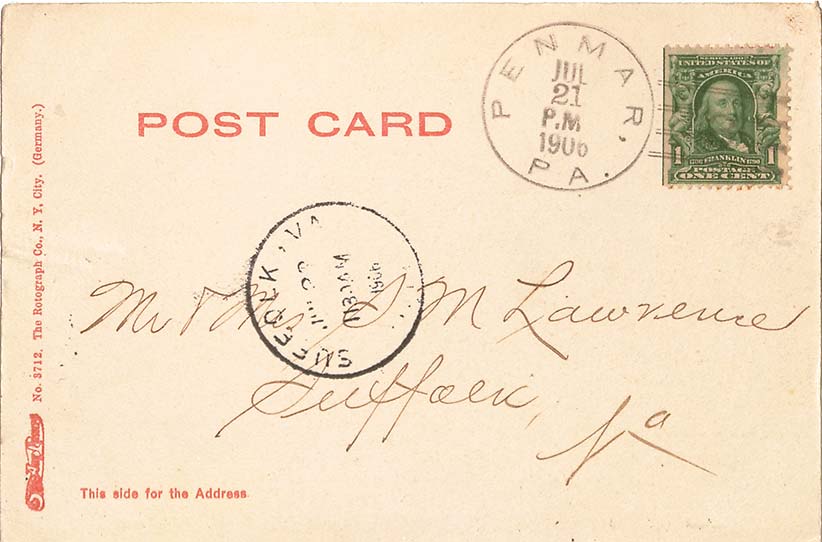 POST CARD
PENMAR, PA.
JUL
21
P.M
1906
SERIES 1902
UNITED STATES OF
AMERICA
1 FRANKLIN 1
POSTAGE
ONE CENT
SUFFOLK, VA
1130AM
1906
Mr & Mrs S M Lawrence
Suffolk, Va
No. 3712. The Rotograph Co., N. Y. City. (Germany.)
This side for the Address